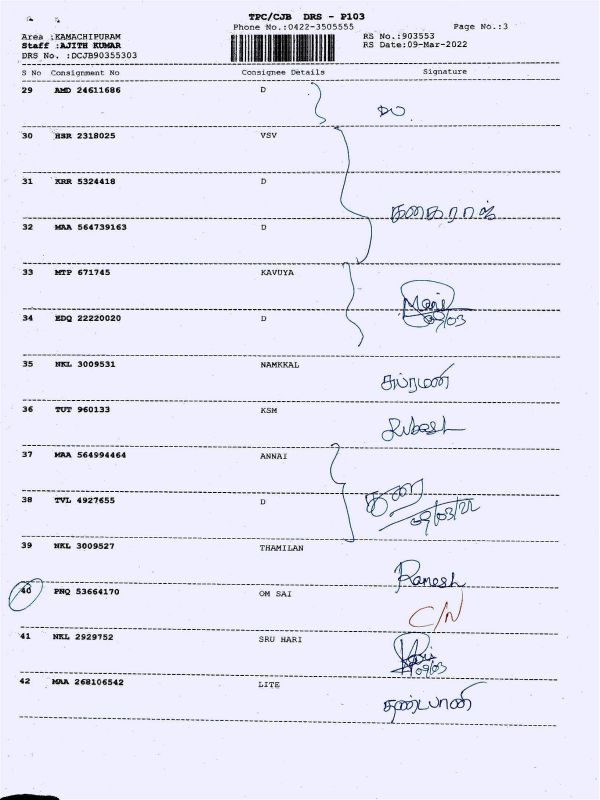 TPC/CJB DRS - P103
Phone No.:0422-3505555 Page No.:3
Area :KAMACHIPURAM RS No.:903553
Staff :AJITH KUMAR RS Date:09-Mar-2022
DRS No. :DCJB90355303
S No Consignment No Consignee Details Signature
29 AMD 24611686 D
30 HSR 2318025 VSV
31 KRR 5324418 D
கனகராஜ்
32 MAA 564739163 D
33 MTP 671745 KAVUYA
Mani
09/03
34 EDQ 22220020 D
35 NKL 3009531 NAMKKAL
சுப்ரமணி
36 TUT 960133 KSM
37 MAA 564994464 ANNAI
38 TVL 4927655 D
09/03/22
39 NKL 3009527 THAMILAN
Ramesh
40 PNQ 53664170 OM SAI
C/N
41 NKL 2929752 SRU HARI
09/03
42 MAA 268106542 LITE
தண்டபாணி